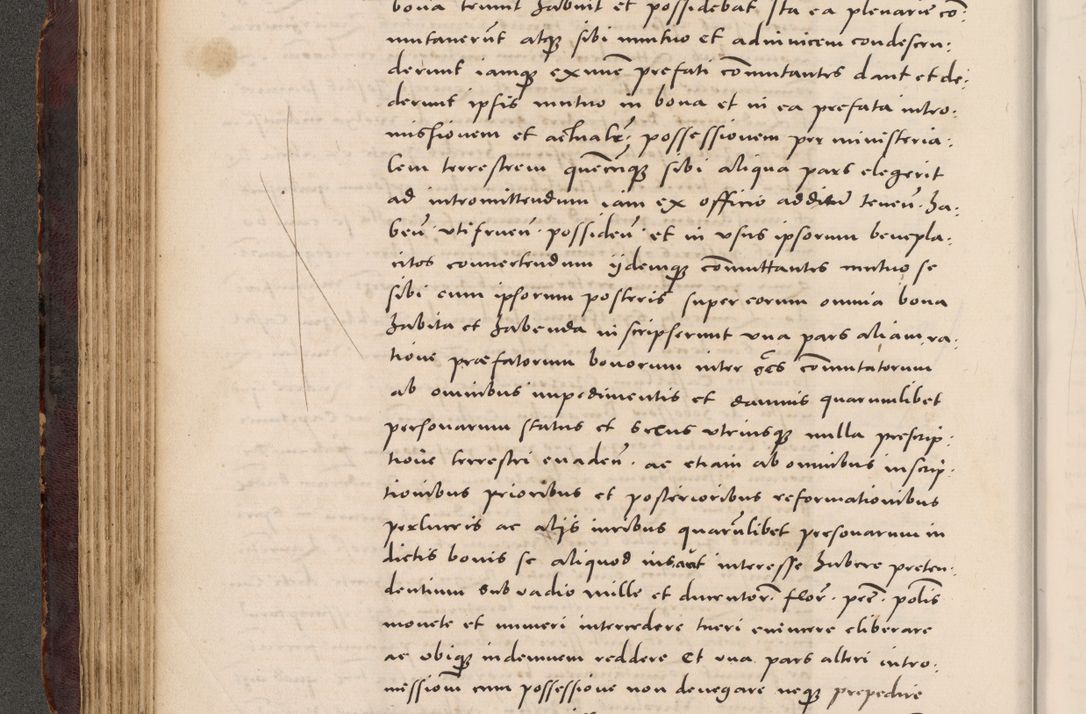 bona tenuit habuit et possidebat Ita ea plenarie co:
mutaverūt atqȝ sibi mutuo et adinvicem condescen:
derunt iamqȝ ex nunc prefati com̄utantes dant et de:
derunt ipsis mutuo in bona et in ea prefata intro:
missionem et actualē possessionem per ministeria:
lem terrestrem quēcunqȝ sibi aliqua pars elegerit
ad intromittendum iam ex officio additū tenen̄. ha:
ben̄. utifruen̄. possiden̄. et in usus ipsorum benepla:
citos convertendum ijdemqȝ com̄uttantes mutuo se
sibi cum ipsorum posteris super eorum omnia bona
habita et habenda inscripserunt una pars aliam ra:
tione præfatorum bonorum inter se com̄utatorum
ab omnibus impedimentis et damnis quarumlibet
personarum status et sexus utriusqȝ nulla prescrip:
tione terrestri evaden̄. ac etiam ab omnibus inscrip:
tionibus prioribus et posterioribus reformationibus
perlucris ac alijs iuribus quarūlibet presonarum in
dictis bonis se aliquod ius aut interesse habere preten:
dentium sub vadio mille et ducentor̄. flor̄. pec̄. polis
monete et numeri intercedere tueri evincere eliberare
ac ubiqȝ indemnem reddere Et una pars alteri intro:
missionē cum possessione non denegare neqȝ prepedire